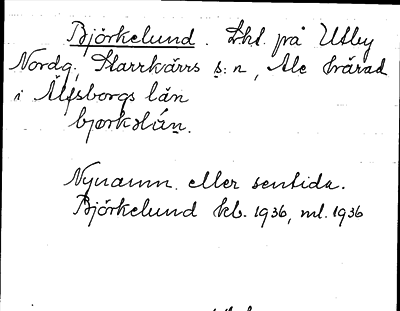 Björkelund. Lht. på Utby
Nordg; Starrkärrs s:n, Ale härad
i Älfsborgs län
Nynamn. eller sentida.
Björkelund kb. 1936, ml. 1936